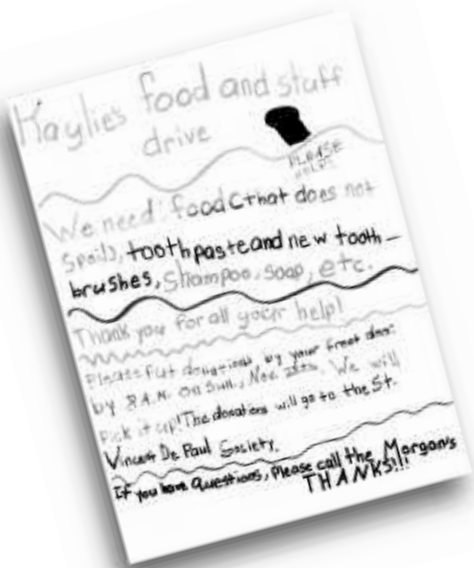 Kaylie's food and stuff
drive
PLEASE
HELP!
We need food (that does not
spoil), toothpaste and new tooth-
brushes, Shampoo, soap, etc.
Thank you for all your help!
Please put donations by your front door
by 8 A.M. on Sun., Nov. We will
Pick it up! The donations will go to the St.
Vincent De Paul Society.
If you have questions, Please call the Morgan's
THANKS!!!